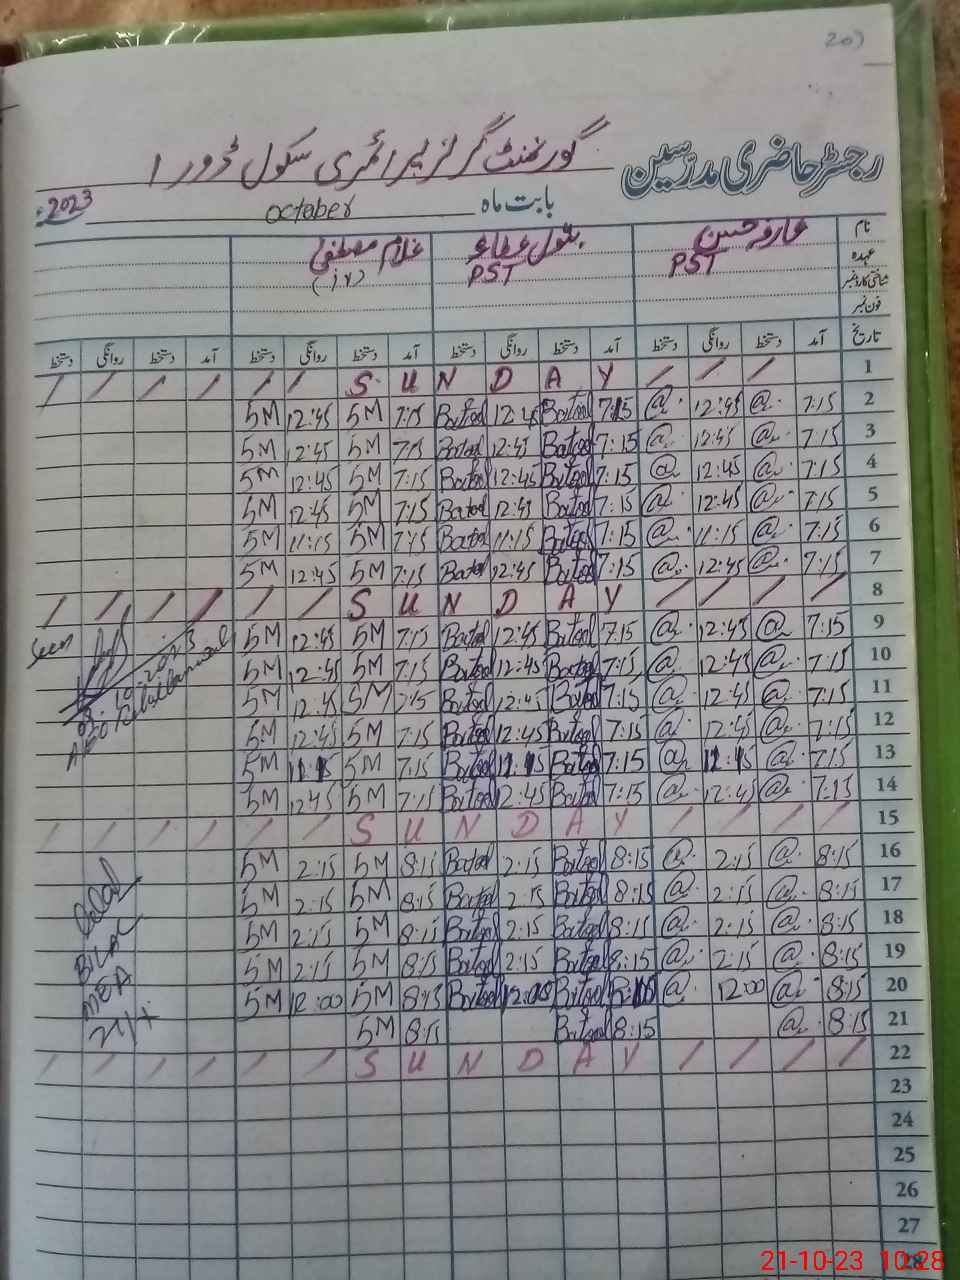 203
رجسٹر حاضری مدرسین گورنمنٹ گرلز پرائمری سکول ٹرور 1
بابت ماہ October 2023ء
نام عارفہ حسن بتول عطاء غلام مصطفیٰ
عہدہ PST PST
شناختی کارڈ نمبر
فون نمبر
تاریخ آمد دستخط روانگی دستخط آمد دستخط روانگی دستخط آمد دستخط روانگی دستخط آمد دستخط روانگی دستخط
1 / / / S U N D A Y / / / / / /
2 7:15 @ 12:45 @ 7:15 Batool 12:45 Batool 7:15 SM 12:45 SM
3 7:15 @ 12:45 @ 7:15 Batool 12:45 Batool 7:15 SM 12:45 SM
4 7:15 @ 12:45 @ 7:15 Batool 12:45 Batool 7:15 SM 12:45 SM
5 7:15 @ 12:45 @ 7:15 Batool 12:45 Batool 7:15 SM 12:45 SM
6 7:15 @ 11:15 @ 7:15 Batool 11:15 Batool 7:15 SM 11:15 SM
7 7:15 @ 12:45 @ 7:15 Batool 12:45 Batool 7:15 SM 12:45 SM
8 / / / / S U N D A Y / / / / / /
9 7:15 @ 12:45 @ 7:15 Batool 12:45 Batool 7:15 SM 12:45 SM Seen
10 7:15 @ 12:45 @ 7:15 Batool 12:45 Batool 7:15 SM 12:45 SM
11 7:15 @ 12:45 @ 7:15 Batool 12:45 Batool 7:15 SM 12:45 SM 10-2023
12 7:15 @ 12:45 @ 7:15 Batool 12:45 Batool 7:15 SM 12:45 SM
13 7:15 @ @ 7:15 Batool Batool 7:15 SM SM
14 7:15 @ 12:45 @ 7:15 Batool 12:45 Batool 7:15 SM 12:45 SM
15 / / / / S U N D A Y / / / / / /
16 8:15 @ 2:15 @ 8:15 Batool 2:15 Batool 8:15 SM 2:15 SM
17 8:15 @ 2:15 @ 8:15 Batool 2:15 Batool 8:15 SM 2:15 SM
18 8:15 @ 2:15 @ 8:15 Batool 2:15 Batool 8:15 SM 2:15 SM
19 8:15 @ 2:15 @ 8:15 Batool 2:15 Batool 8:15 SM 2:15 SM BiLAL
20 8:15 @ 12:00 @ Batool 12:00 Batool 8:15 SM 12:00 SM MEA
21 8:15 @ 8:15 Batool 8:15 SM
22 / / / / S U N D A Y / / / / / /
23
24
25
26
27
28
21-10-23 10:28